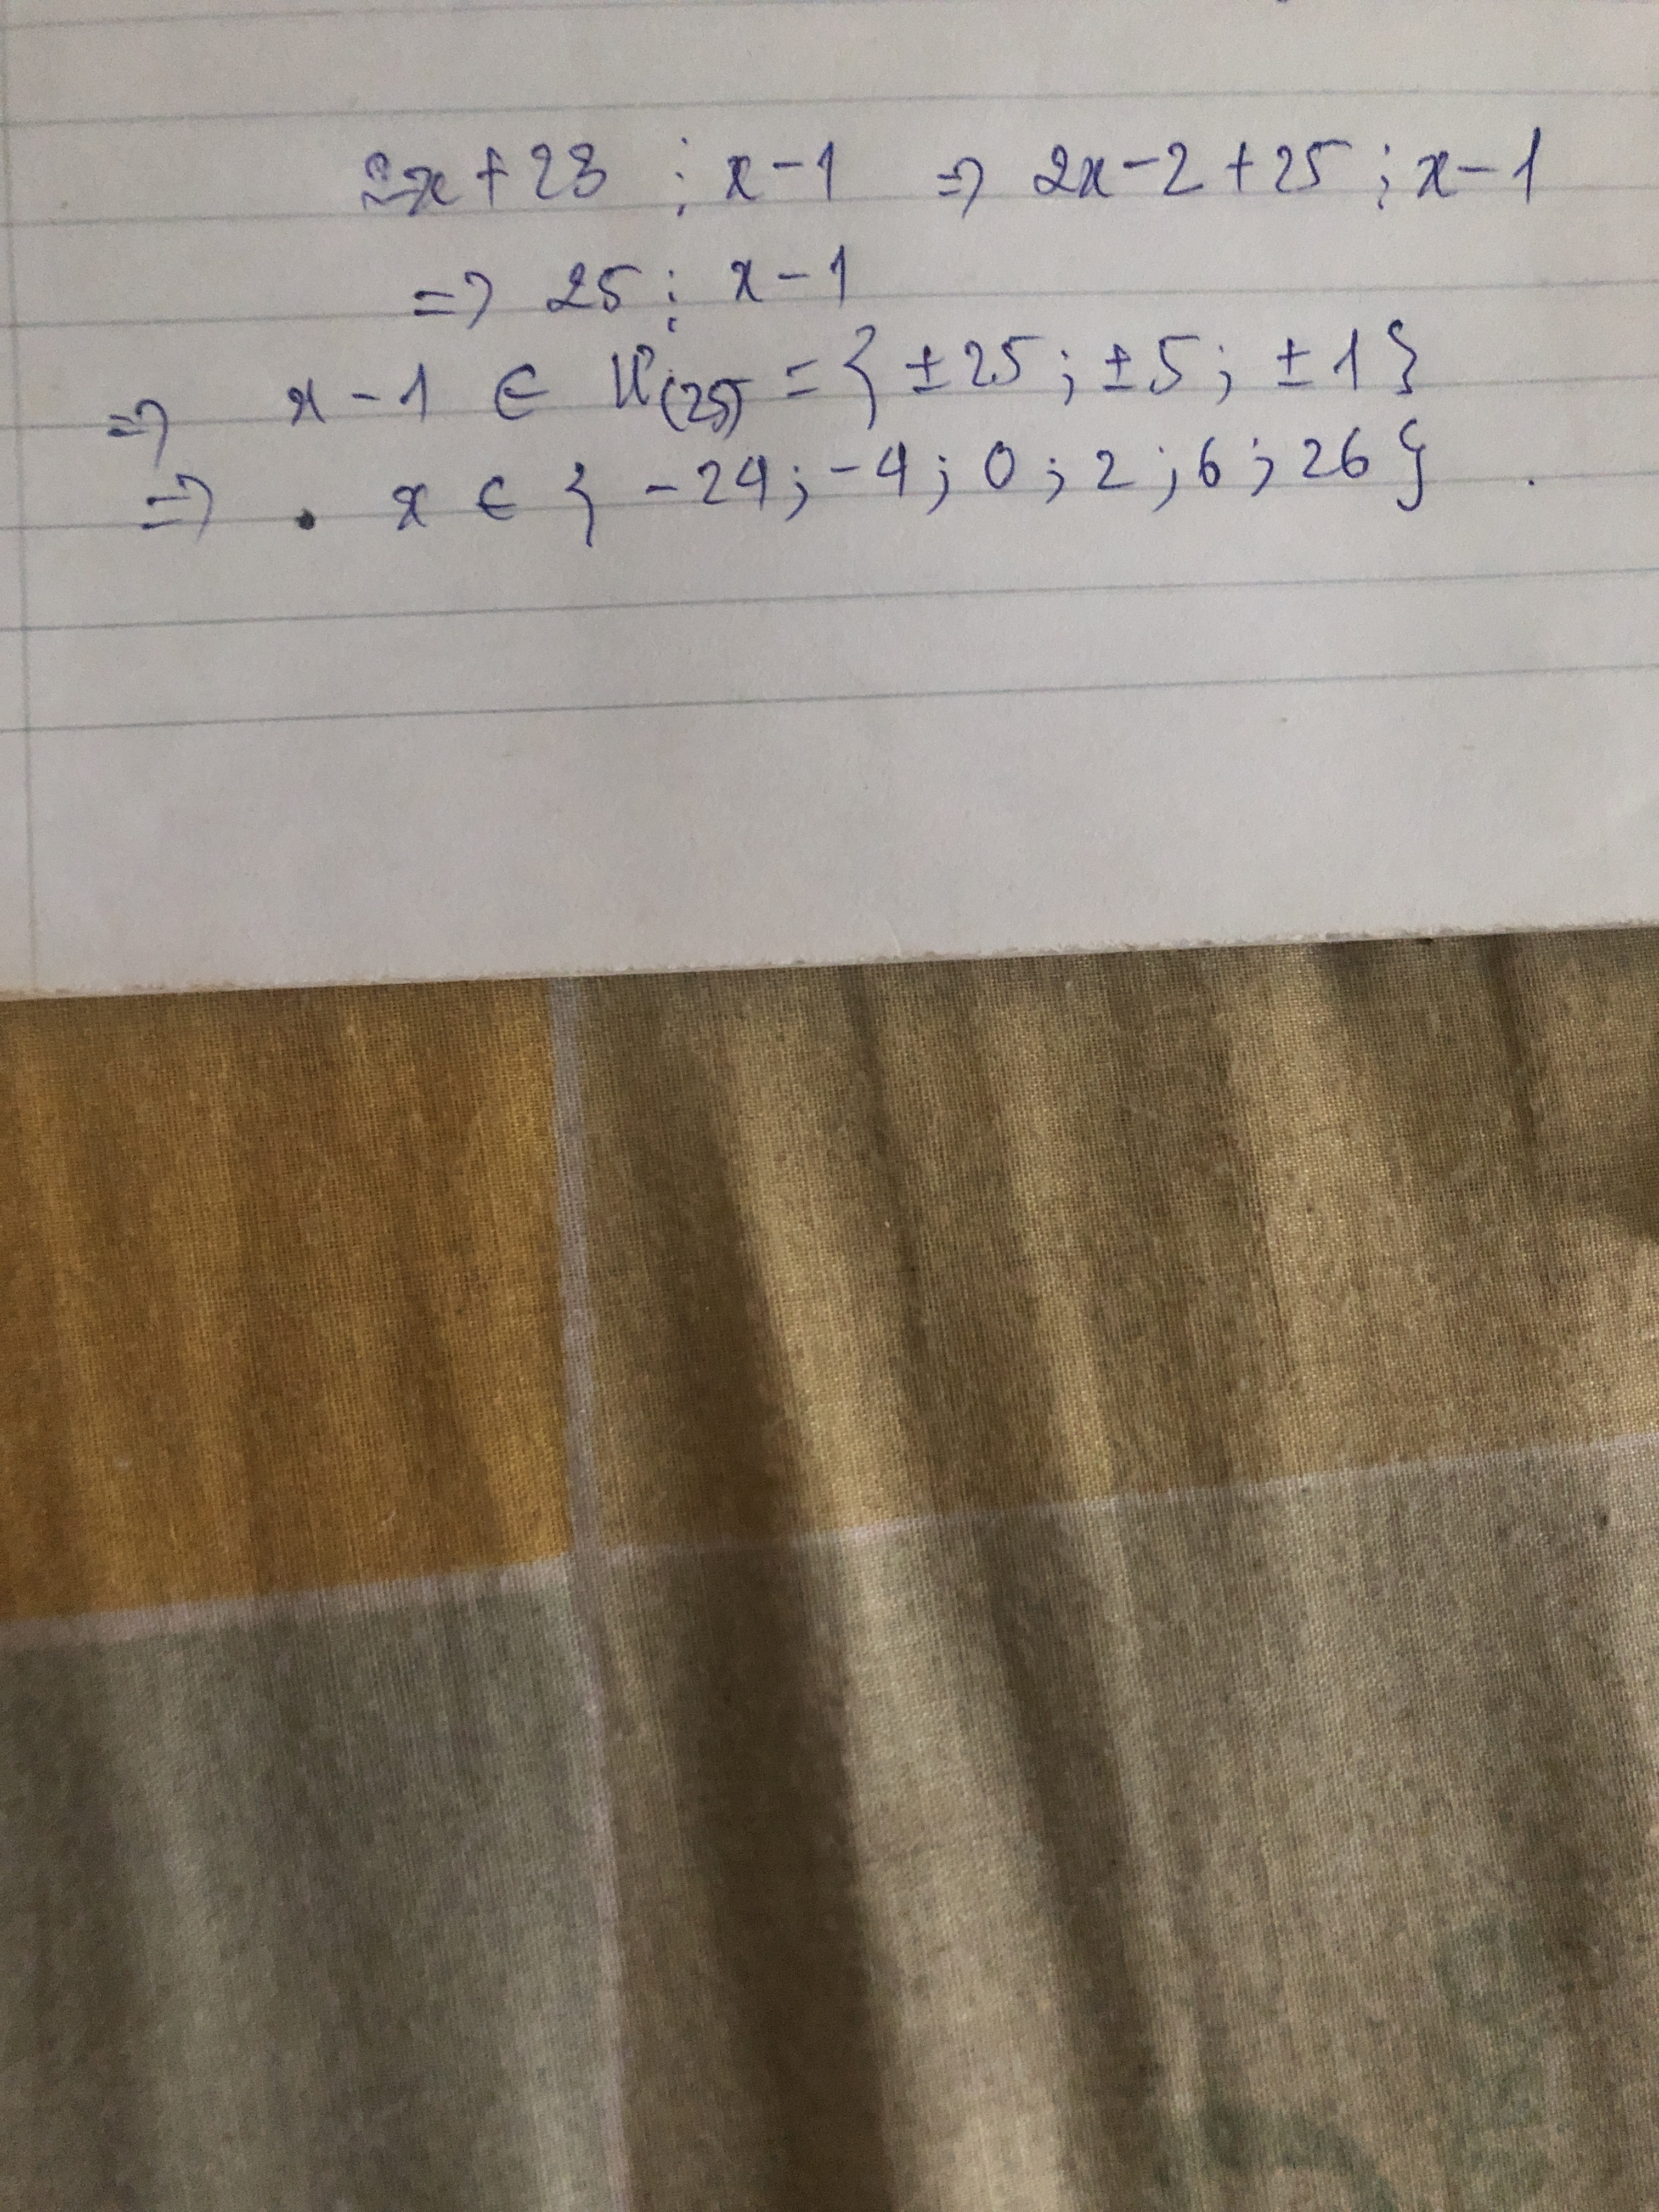 2x + 23 ⋮ x - 1 => 2x - 2 + 25 ⋮ x - 1
=> 25 ⋮ x - 1
=> x - 1 ∈ Ư(25) = { ± 25 ; ± 5 ; ± 1 }
=> x ∈ { - 24 ; - 4 ; 0 ; 2 ; 6 ; 26 } .